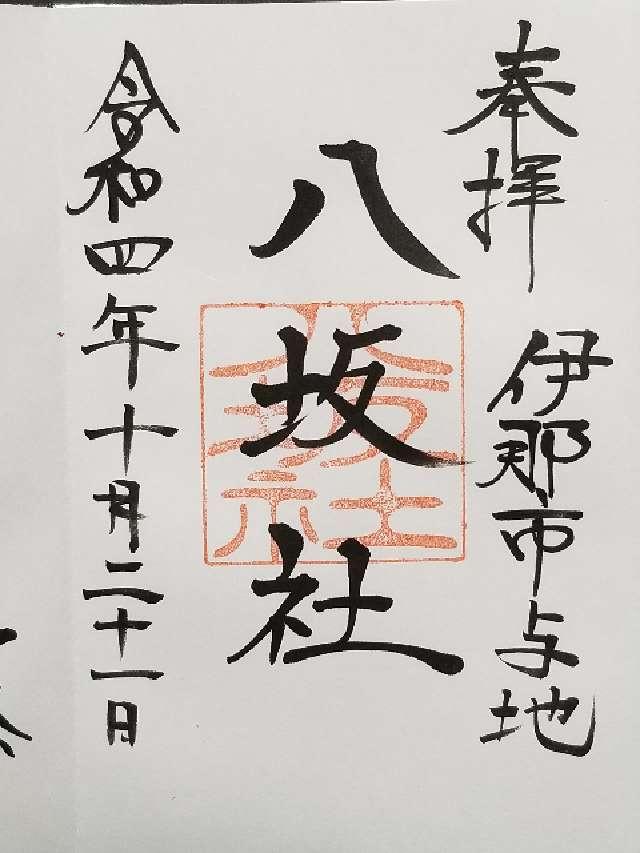 奉拝
伊那市与地
八坂社
八坂社
令和四年十月二十一日